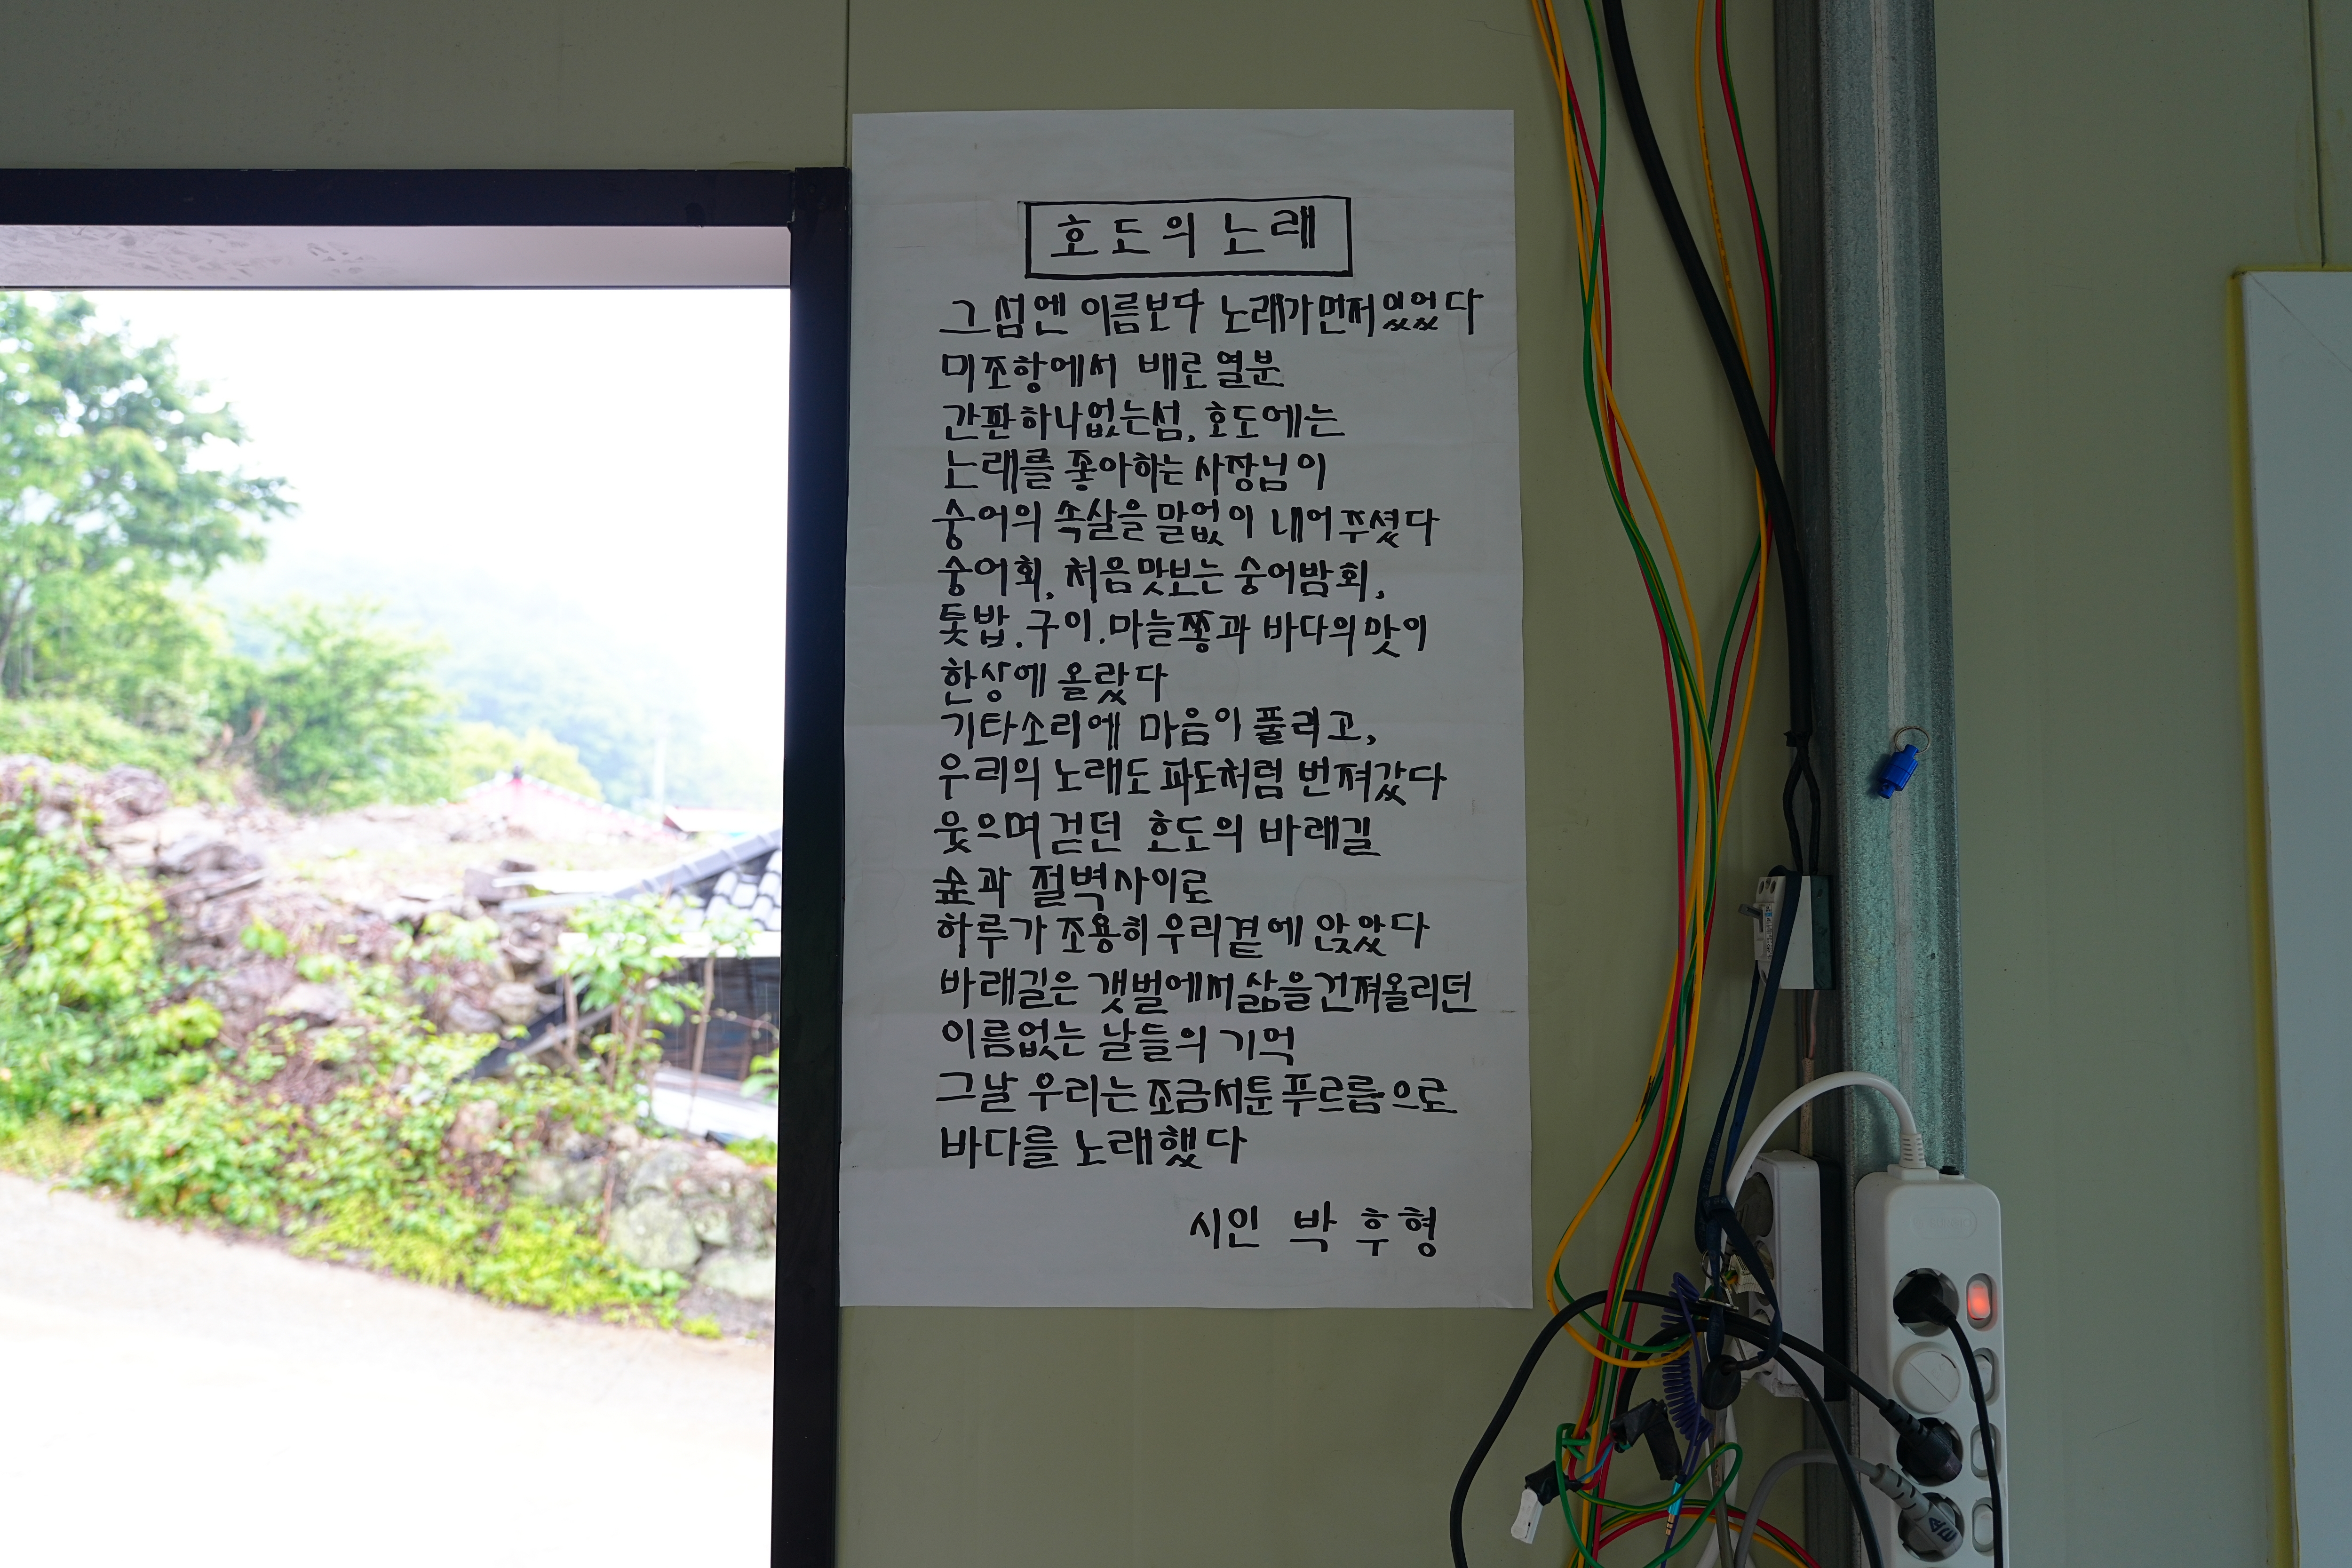 호도의 노래
그 섬엔 이름보다 노래가 먼저 있었다
미조항에서 배로 열분
간판하나없는섬, 호도에는
노래를 좋아하는 사장님이
숭어의 속살을 말없이 내어주셨다
숭어회, 처음맛보는 숭어밤회,
톳밥.구이.마늘쫑과 바다의맛이
한상에 올랐다
기타소리에 마음이 풀리고,
우리의 노래도 파도처럼 번져갔다
웃으며걷던 호도의 바래길
숲과 절벽사이로
하루가 조용히 우리곁에 앉았다
바래길은 갯벌에서 삶을 건져올리던
이름없는 날들의 기억
그날 우리는 조금서툰 푸르름으로
바다를 노래했다
시인 박 후 형